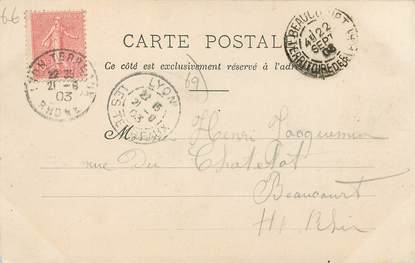 66
LYON TERREAUX
22 35
21 - 9
03
RHONE
CARTE POSTALE
Ce côté est exclusivement réservé à l'adresse
BEAUCOURT
22
SEPT
03
TERRITOIRE DE BELFORT
LYON
21 - 9
03
LES TERREAUX
(9)
M Henri Jacquemin
rue du Chatelot
Beaucourt
Ht Rhin